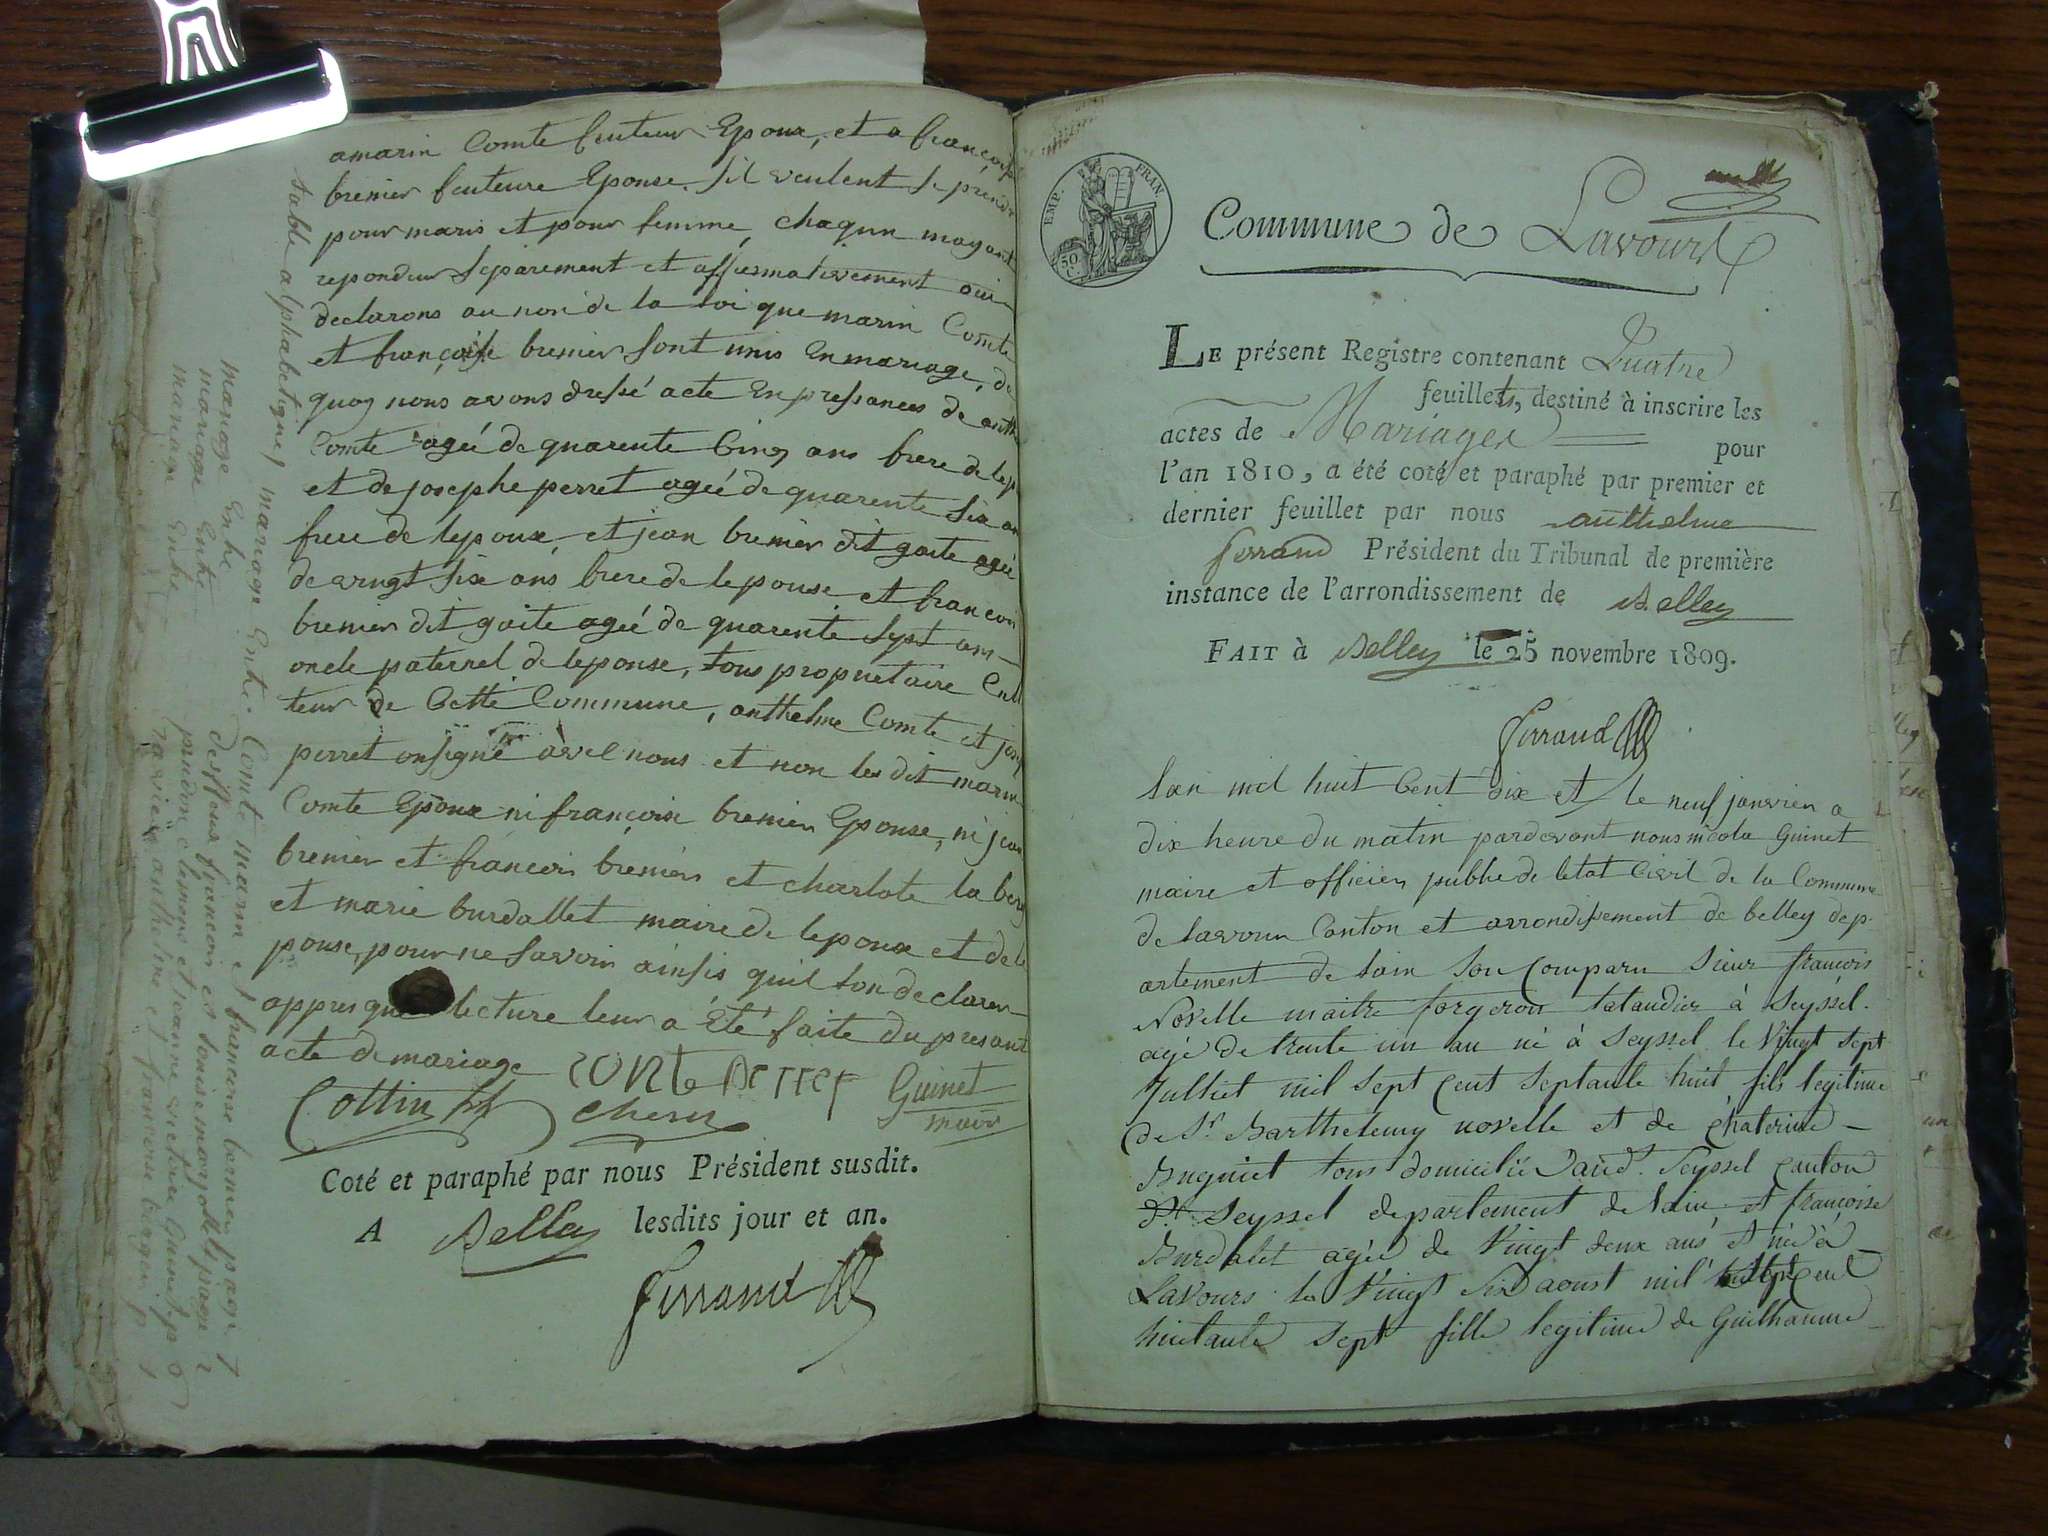 amarin Comte futeur Epoux, et a francoise
bremier feuteure Epouse. sil veulent se prendre
pour maris et pour femme, chaqun mayant
repondeu separement et affirmativement oui
declarons au non de la loi que marin Comte
et françoise bremier sont unis En mariage, de
quoy nous avons dressé acte En pressances de anth
Comte ageé de quarente Cinq ans frere de lep
et de josephe perret ageé de quarente six an
frere de lepoux, et jean bremier dit goite ageé
de vingt six ans frere de lepouse et francois
bremier dit goite ageé de quarente sept ans
oncle paternel de lepouse, tous proprietaire Cul
teur de Cette Commune, anthelme Comte et jose
perret onsigné avel nous et non les dit marin
Comte Epoux ni françoise bremier Epouse, ni jean
bremier et francois bremier et charlote la berg
et marie burdallet maire de lepoux et de le
pouse, pour ne savoir ainsis quil lon declarer
appres que lecture leur a Été faite du presant
acte de mariage
CONTe PeRReT Guinet
Cottin Chesn maire
Coté et paraphé par nous Président susdit.
A Belley lesdits jour et an.
Ferrand
table alphabetique mariage Entre Comte marin et francoise bremier page 1
mariage Entre desseux francois et louise page 2
mariage Entre prudon clemens et jeanne Guinet p
mariage Entre ravier anthelme et francoise p
EMP. FRAN
50
C.
Commune de Lavours
LE présent Registre contenant Quatre
feuillets, destiné à inscrire les
actes de Mariages pour
l'an 1810, a été coté et paraphé par premier et
dernier feuillet par nous anthelme
ferrand Président du Tribunal de première
instance de l'arrondissement de Belley
FAIT à Belley le 25 novembre 1809.
Ferrand
Lan mil huit Cent dix et le neuf janvier a
dix heure du matin pardevant nous nicola Guinet
maire et officier publie de letat Civil de la Commune
de lavour Canton et arrondissement de belley dep-
artement de lain Son Comparu Sieur francois
Novelle maitre forgeron talandier à Seyssel.
agé de trente un an né à Seyssel le Vingt sept
Julliet mil Sept Cent Septante huit fils legitime
de Sr. Barthelemy novelle et de Chaterine
Buguiet tous domicilié Seyssel Canton
de Seyssel departement de lain et françoise
Burdalet agée de Vingt deux ans et née à
Lavours le Vingt Six aoust mil Sept Cent
huitante Sept fille legitime de Guilhaume